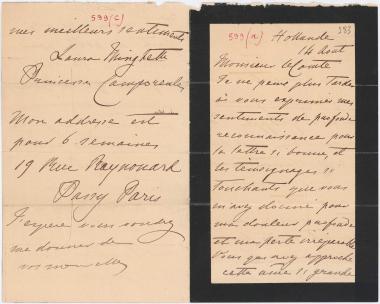 599(c)
mes meilleurs sentiments
Laura Minghetti
Princesse Camporeale
Mon addresse est
pour 6 semaines
19 Rue Raynouard
Passy Paris
J'espère vous voudrez
me donner de
vos nouvelles
599(a)
383
Hollande
14 Août
Monsieur le Comte
Je ne peux plus tarder
à vous exprimer mes
sentiments de profonde
reconnaissance pour
la lettre si bonne, et
les témoignages si
touchants que vous
m'avez donné pour
ma douleur profonde
et ma perte irréparable
Vous qui avez approché
cette âme si grande